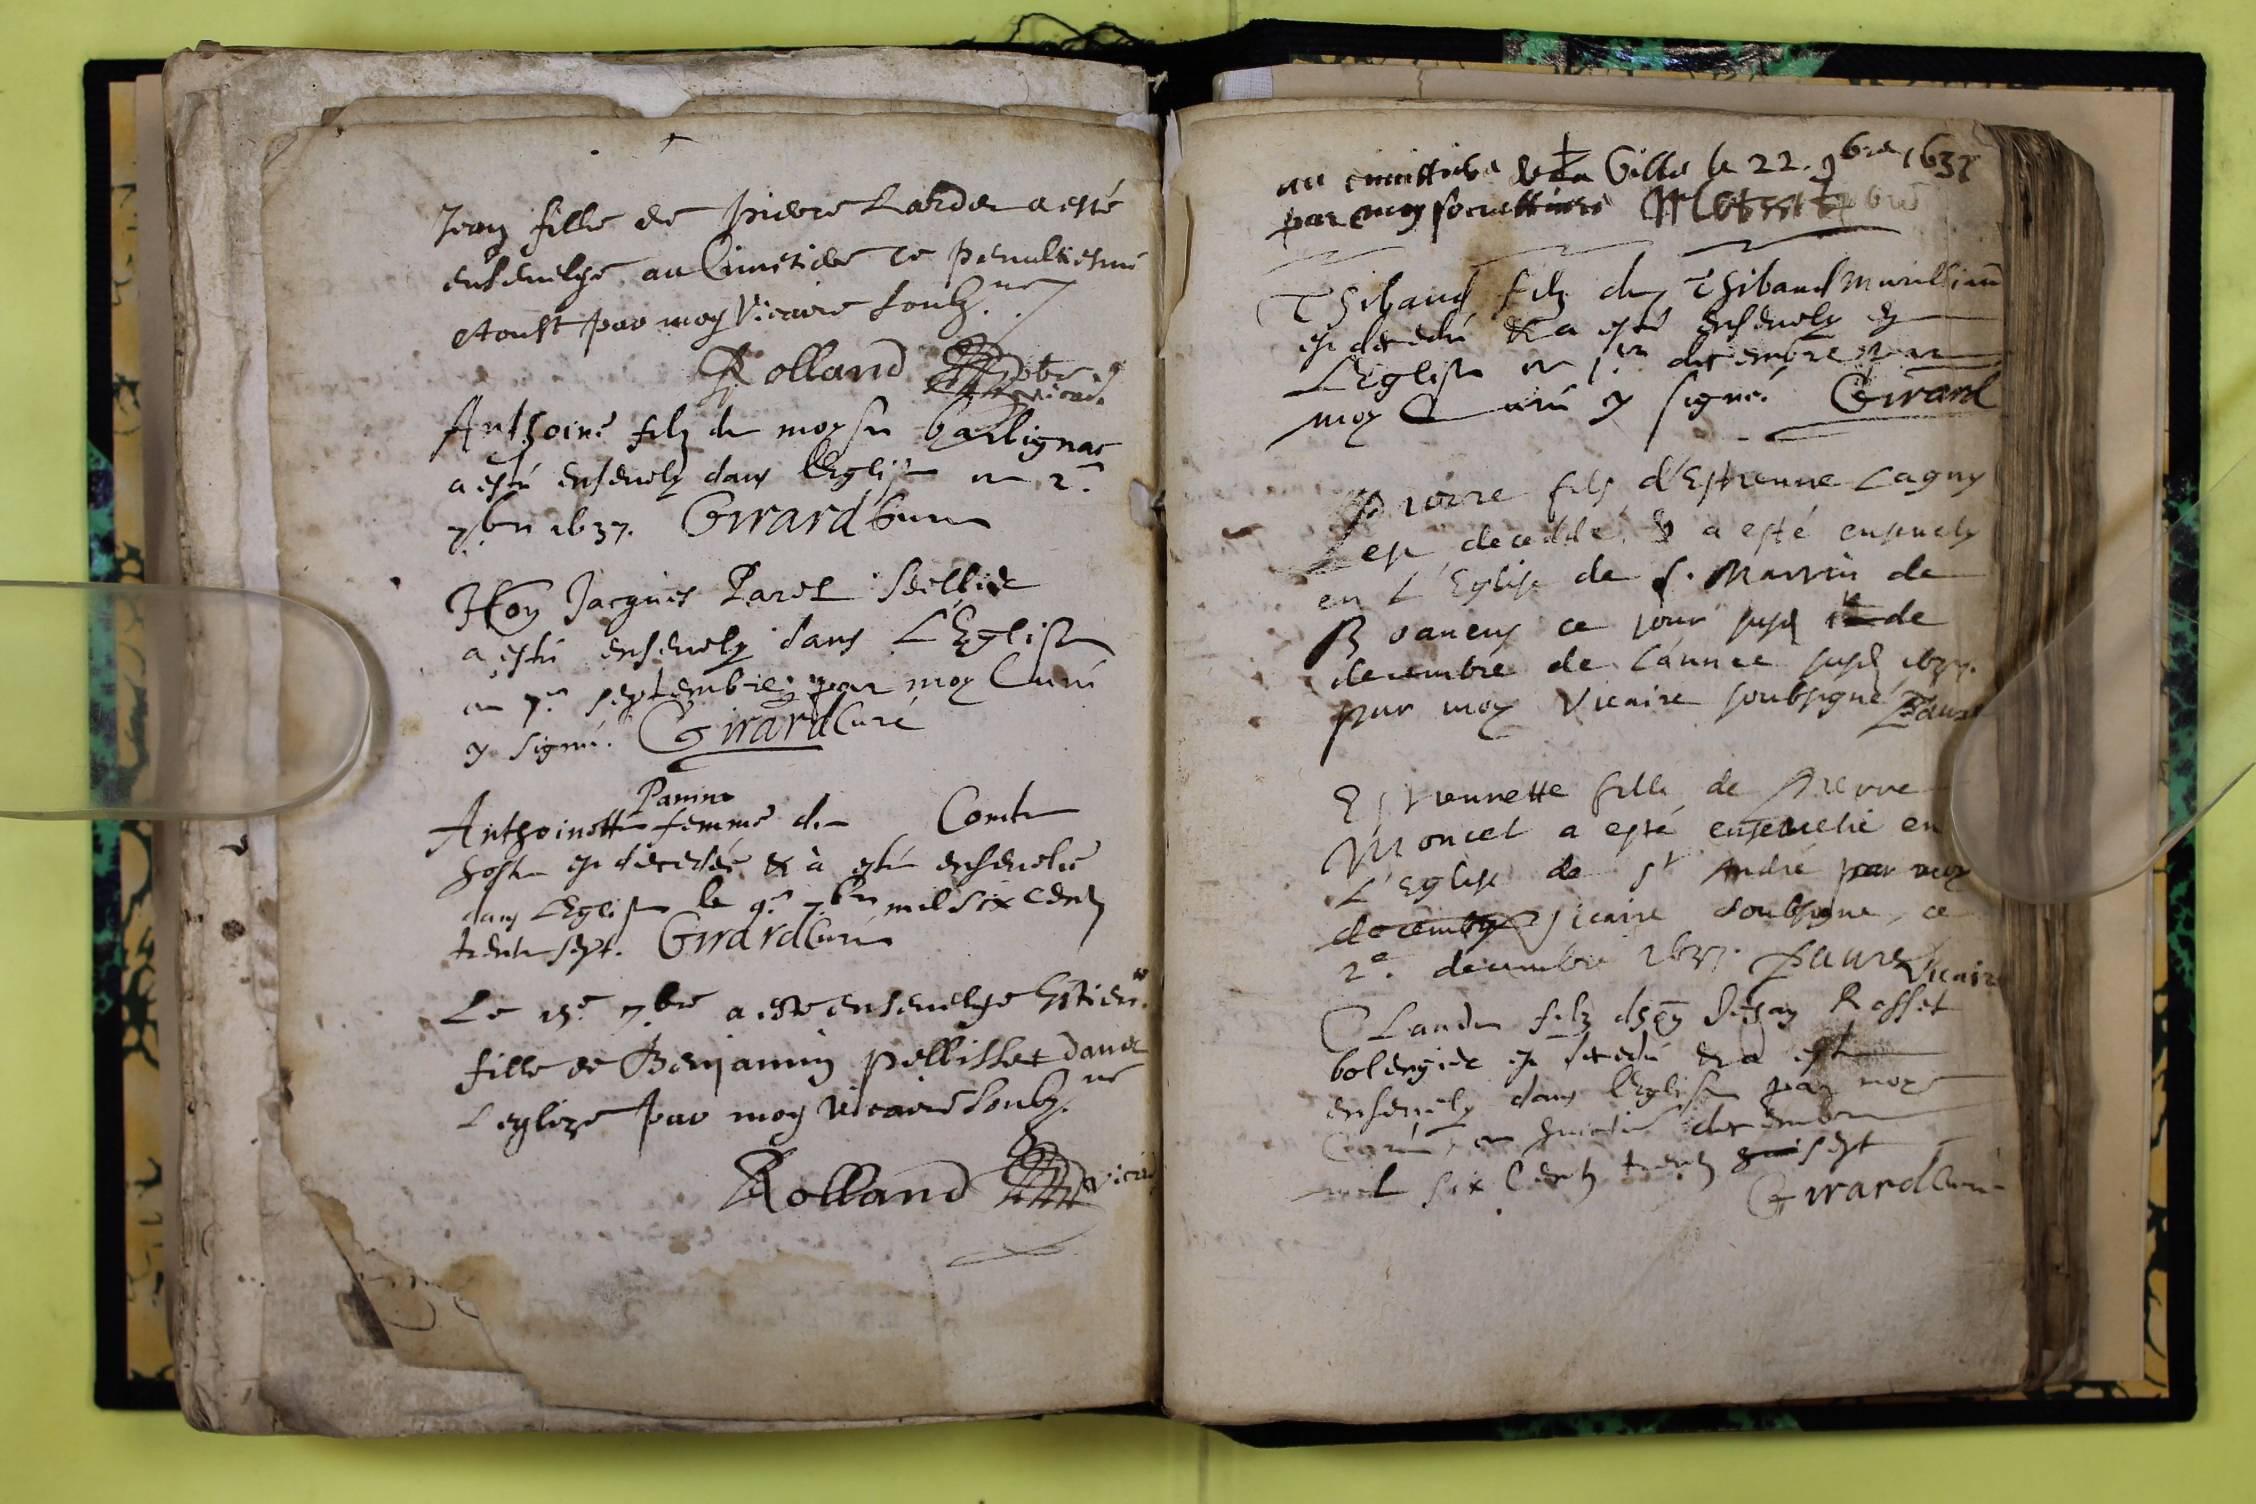 Jean fille de pierre Larder a esté
ensevelye au Cimetiere ce penultiesme
Aoust par moy Vicaire soubz.né
Rolland pbre
vicaire
Anthoine filz de moyse Barlignac
a esté ensevely dans l'Eglise ce 2.e
7.bre 1637. Girard Curé
Hon Jacques Paret Sellier
a esté ensevely dans L'Eglise
ce 7.e septembre par moy Curé
y signé. Girard Curé
Panine
Anthoinette femme de Comte
hoste est decedée & à esté ensevelie
dans L'Eglise le 9.e 7.bre mil six centz
trente sept. Girard Curé
Le 15.e 7.bre a esté ensevelye Estien.e
fille de Benjamin pellisset dans
L'eglize par moy Vicaire soubz.né
Rolland vicaire
au cimittiere de la Ville le 22. 9bre 1637
par moy soubsigné
Thibaud filz de Thibaud
est decedé & a esté ensevely en
L'Eglise ce 1.er decembre par
moy Curé y signé. Girard
Pierre fils d'Estienne Lagny
est decedé & a esté ensevely
en L'Eglise de S. Martin de
Boaneys ce jour susd de
decembre de l'annee susd 1637.
par moy Vicaire soubsigné Faure
Estiennette fille de Pierre
Moncet a esté ensevelie en
L'Eglise de St André par moy
decembre Vicaire soubsigne, ce
2e. decembre 1637. Faure Vicaire
Claude filz d'hon Jehan Rosset
bolengier est decedé & a esté
ensevely dans l'Eglise par moy
Curé, ce huictie decembre
mil six Centz trente huit sept
Girard Curé